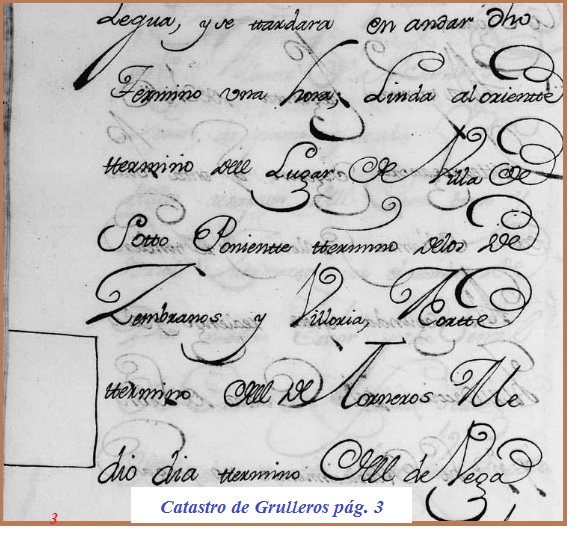 Legua, y se ttardara en andar dho
Termino una hora; Linda al orientte
ttermino dell Lugar de Villa de
Sotto Ponientte ttermino delos de
Zembranos y Villoria, Nortte
ttermino dell de Torneros Me
dio dia ttermino dell de Vega
Catastro de Grulleros pág. 3
3